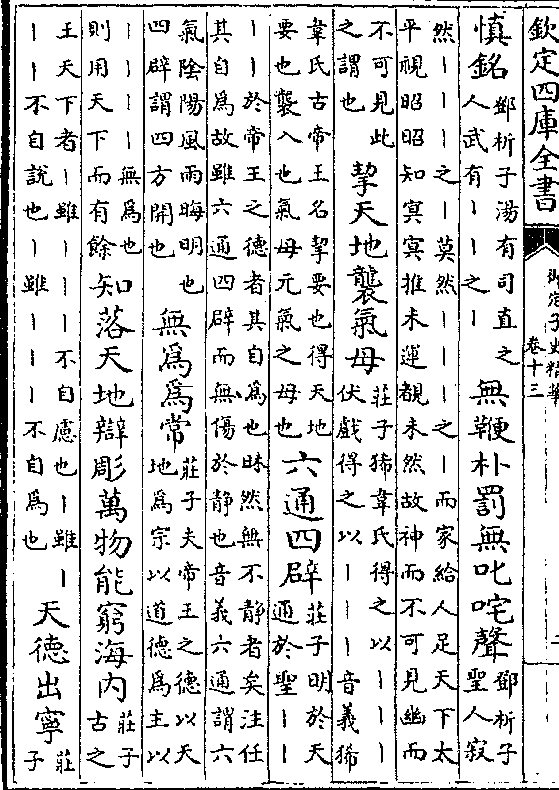 欽定四庫全書
御定子史精華
卷十三
慎銘
鄧析子湯有司直之
人武有｜｜之｜
無鞭朴罰無叱咤聲
鄧析子
聖人寂
然｜｜｜之｜莫然｜｜｜之｜而家給人足天下太
平視昭昭知冥冥推未運覩未然故神而不可見幽而
不可見此
之謂也
挈天地襲氣母
莊子狶韋氏得之以｜｜｜
伏戲得之以｜｜｜音義狶
韋氏古帝王名挈要也得天地
要也襲入也氣母元氣之母也
六通四辟
莊子明於天
通於聖｜｜
｜｜於帝王之德者其自為也昧然無不靜者矣注任
其自為故雖六通四辟而無傷於静也音義六通謂六
氣陰陽風雨晦明也
四辟謂四方開也
無為為常
莊子夫帝王之德以天
地為宗以道德為主以
｜｜｜無為也
則用天下而有餘
知落天地辯彫萬物能窮海内
莊子
古之
王天下者｜雖｜｜｜不自慮也｜雖｜
｜｜不自說也｜雖｜｜｜不自為也
天德出寧
莊
子